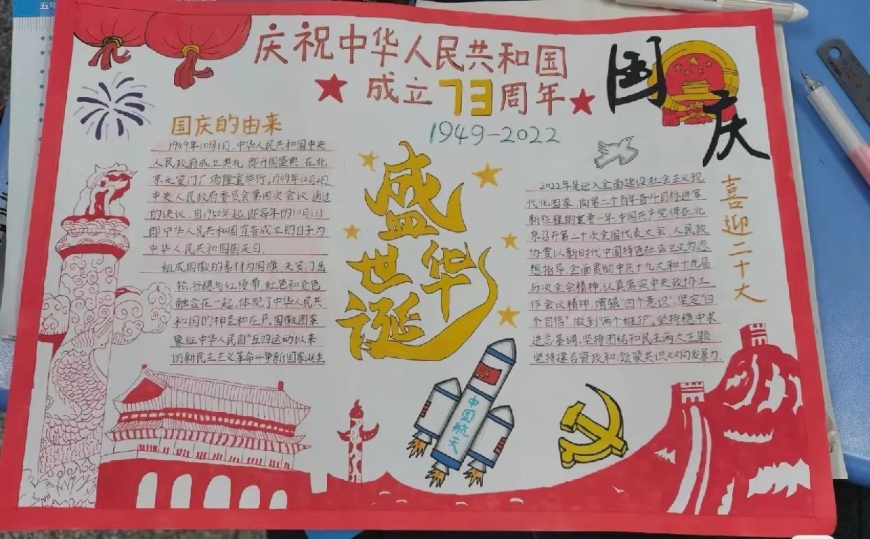 庆祝中华人民共和国
成立73周年
1949-2022
国庆
国庆的由来
1949年10月1日,中华人民共和国中央
人民政府成立典礼,即开国盛典,在北
京天安门广场隆重举行,1949年12月2日,
中央人民政府委员会第四次会议通过
的决议,自1950年起,即每年的10月1日,
即中华人民共和国宣告成立的日子,为
中华人民共和国国庆日。
组成国徽的素材为国旗、天安门、齿
轮、谷穗与红绶带,红色和金色
融合在一起,体现了中华人民共
和国的神圣和庄严,国徽图案
象征中华人民自"五四运动"以来
的新民主主义革命斗争新国家诞生
盛世华诞
中国航天
2022年是进入全面建设社会主义现
代化国家,向第二个百年奋斗目标进军
新征程的重要一年,中国共产党将在北
京召开第二十次全国代表大会,人民政
协要以新时代中国特色社会主义为思
想指导,全面贯彻中共十九大和十九届
历次全会精神,认真落实中央政协工
作会议精神,增强"四个意识",坚定"四
个自信",做到"两个维护",坚持稳中求
进总基调,坚持团结和民主两大主题,
坚持建言资政和凝聚共识双向发力
喜迎二十大